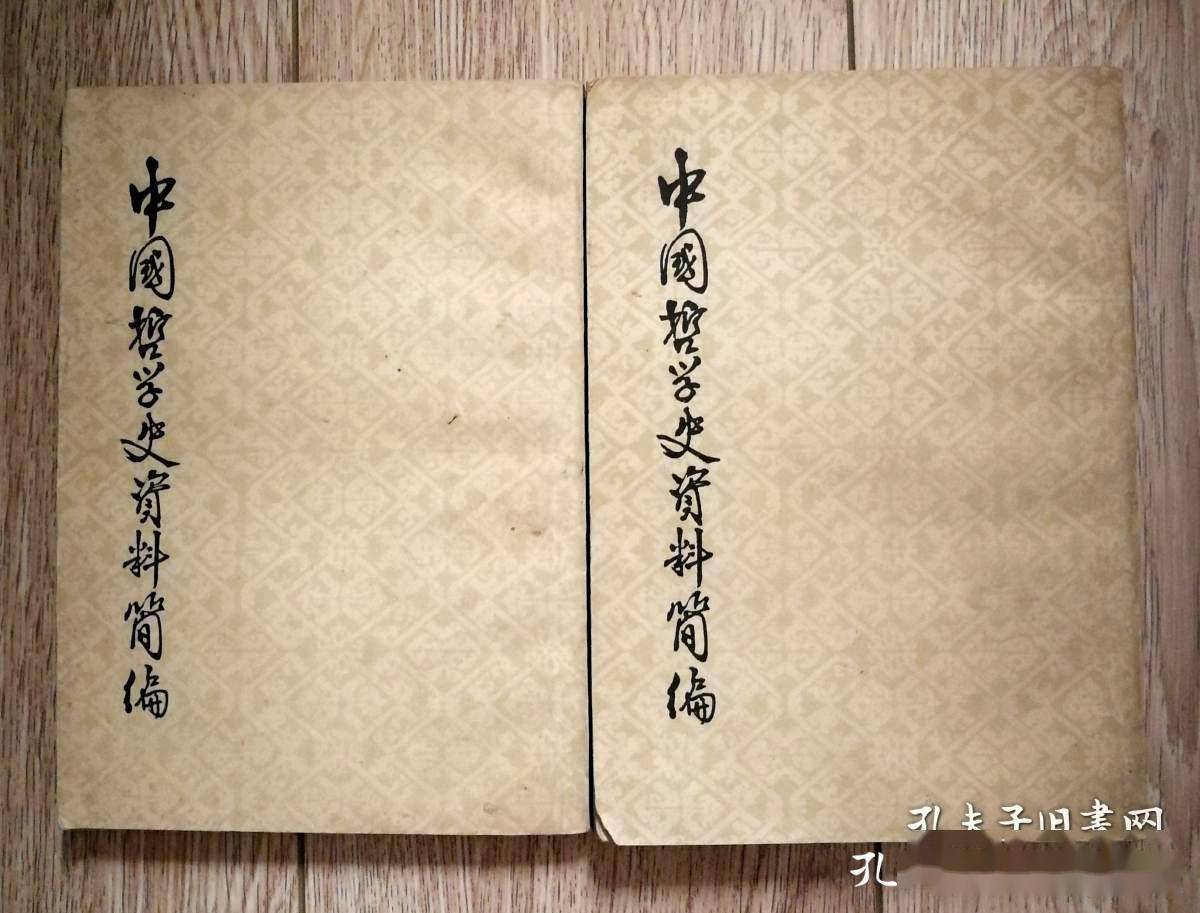 中國哲学史資料简編
中國哲学史資料简編
孔夫子旧書网
孔